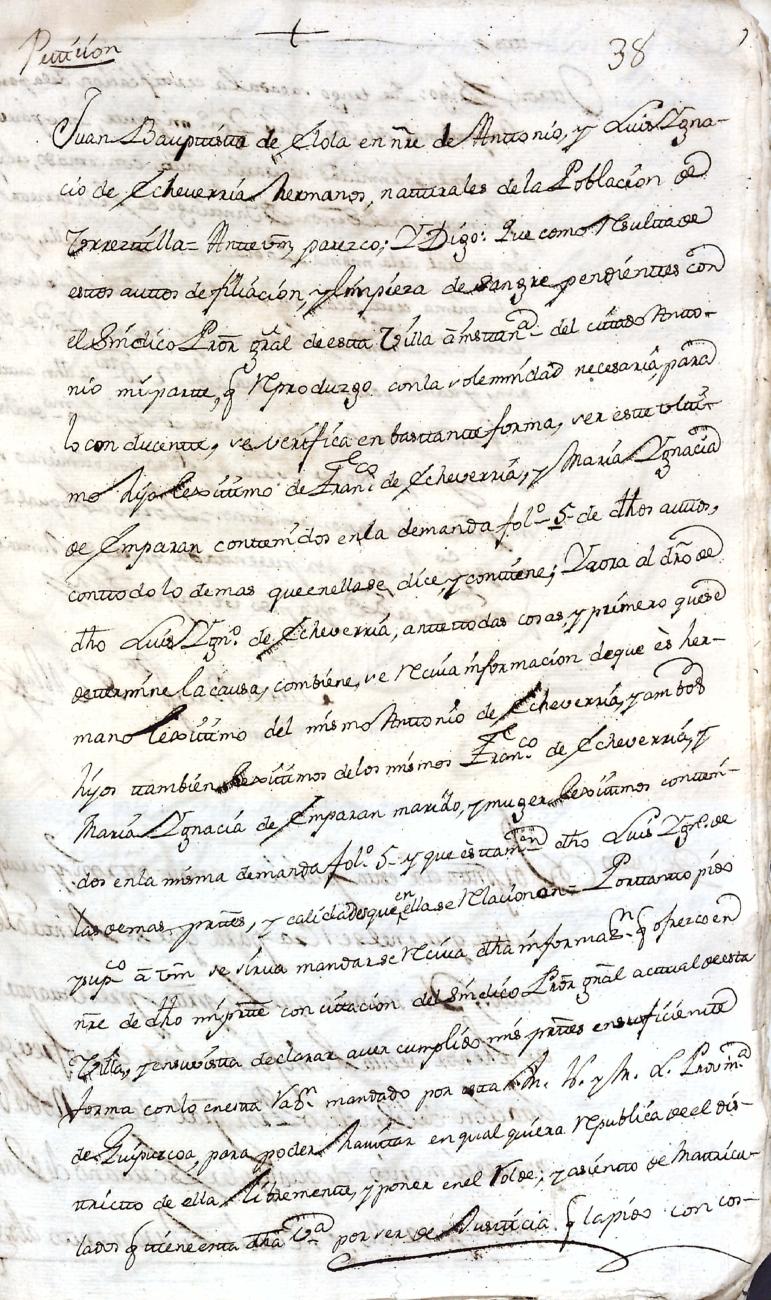 Petición
38
Juan Bauptista de Elola en nře de Antonio, y Luis Ygna-
cio de Echeverria hermanos, naturales de la Poblacion de
Torrezuilla= Ante vm parezco; Y Digo: Que como Resulta de
estos autos de filiacion, y limpieza de sangre pendientes con
el Síndico Prór gràl de esta Villa à instanª. del citado Anto-
nio mi parte, q Reproduzgo con la solemnidad necesaria, para
lo conducente, se verifica en bastante forma, ser este tolti-
mo hijo lexitimo de Franᶜᵒ. de Echeverria, y Maria Ygnacia
de Emparan contenidos en la demanda folº. 5. de dhos autos,
con todo lo demas que en ella se dice, y contiene; Y aora al dro de
dho Luis Ygnº. de Echeverria, ante todas cosas, y primero que se
determine la causa, combiene, se Reciva informacion de que ès her-
mano lexitimo del mismo Antonio de Echeverria, y ambos
hijos tambien lexitimos de los mismos Franᶜᵒ. de Echeverria, y
Maria Ygnacia de Emparan marido, y muger lexitimos conteni-
dos en la misma demanda folº. 5. y que èstan en dho Luis Ygnº. de
las demas partes, y calidades que en ella se Relacionan= Por tanto pido
y supᶜᵒ. à vm se sirva mandar se Reciva dha informazⁿ. q ofrezco en
nře de dho mi parte con citacion del Síndico Prór gñal actual de esta
Villa, y en su vista declarar aver cumplido mis partes en suficiente
forma con lo en esta Razⁿ. mandado por esta M. N. y M. L. Provinª
de Guipuzcoa, para poder havitar en qualquiera Republica de el dis-
tricto de ella libremente, y poner en el Rolde; y asiento de Matricu-
lados q tiene esta dha Vª por ser de Justicia q la pido con cos-